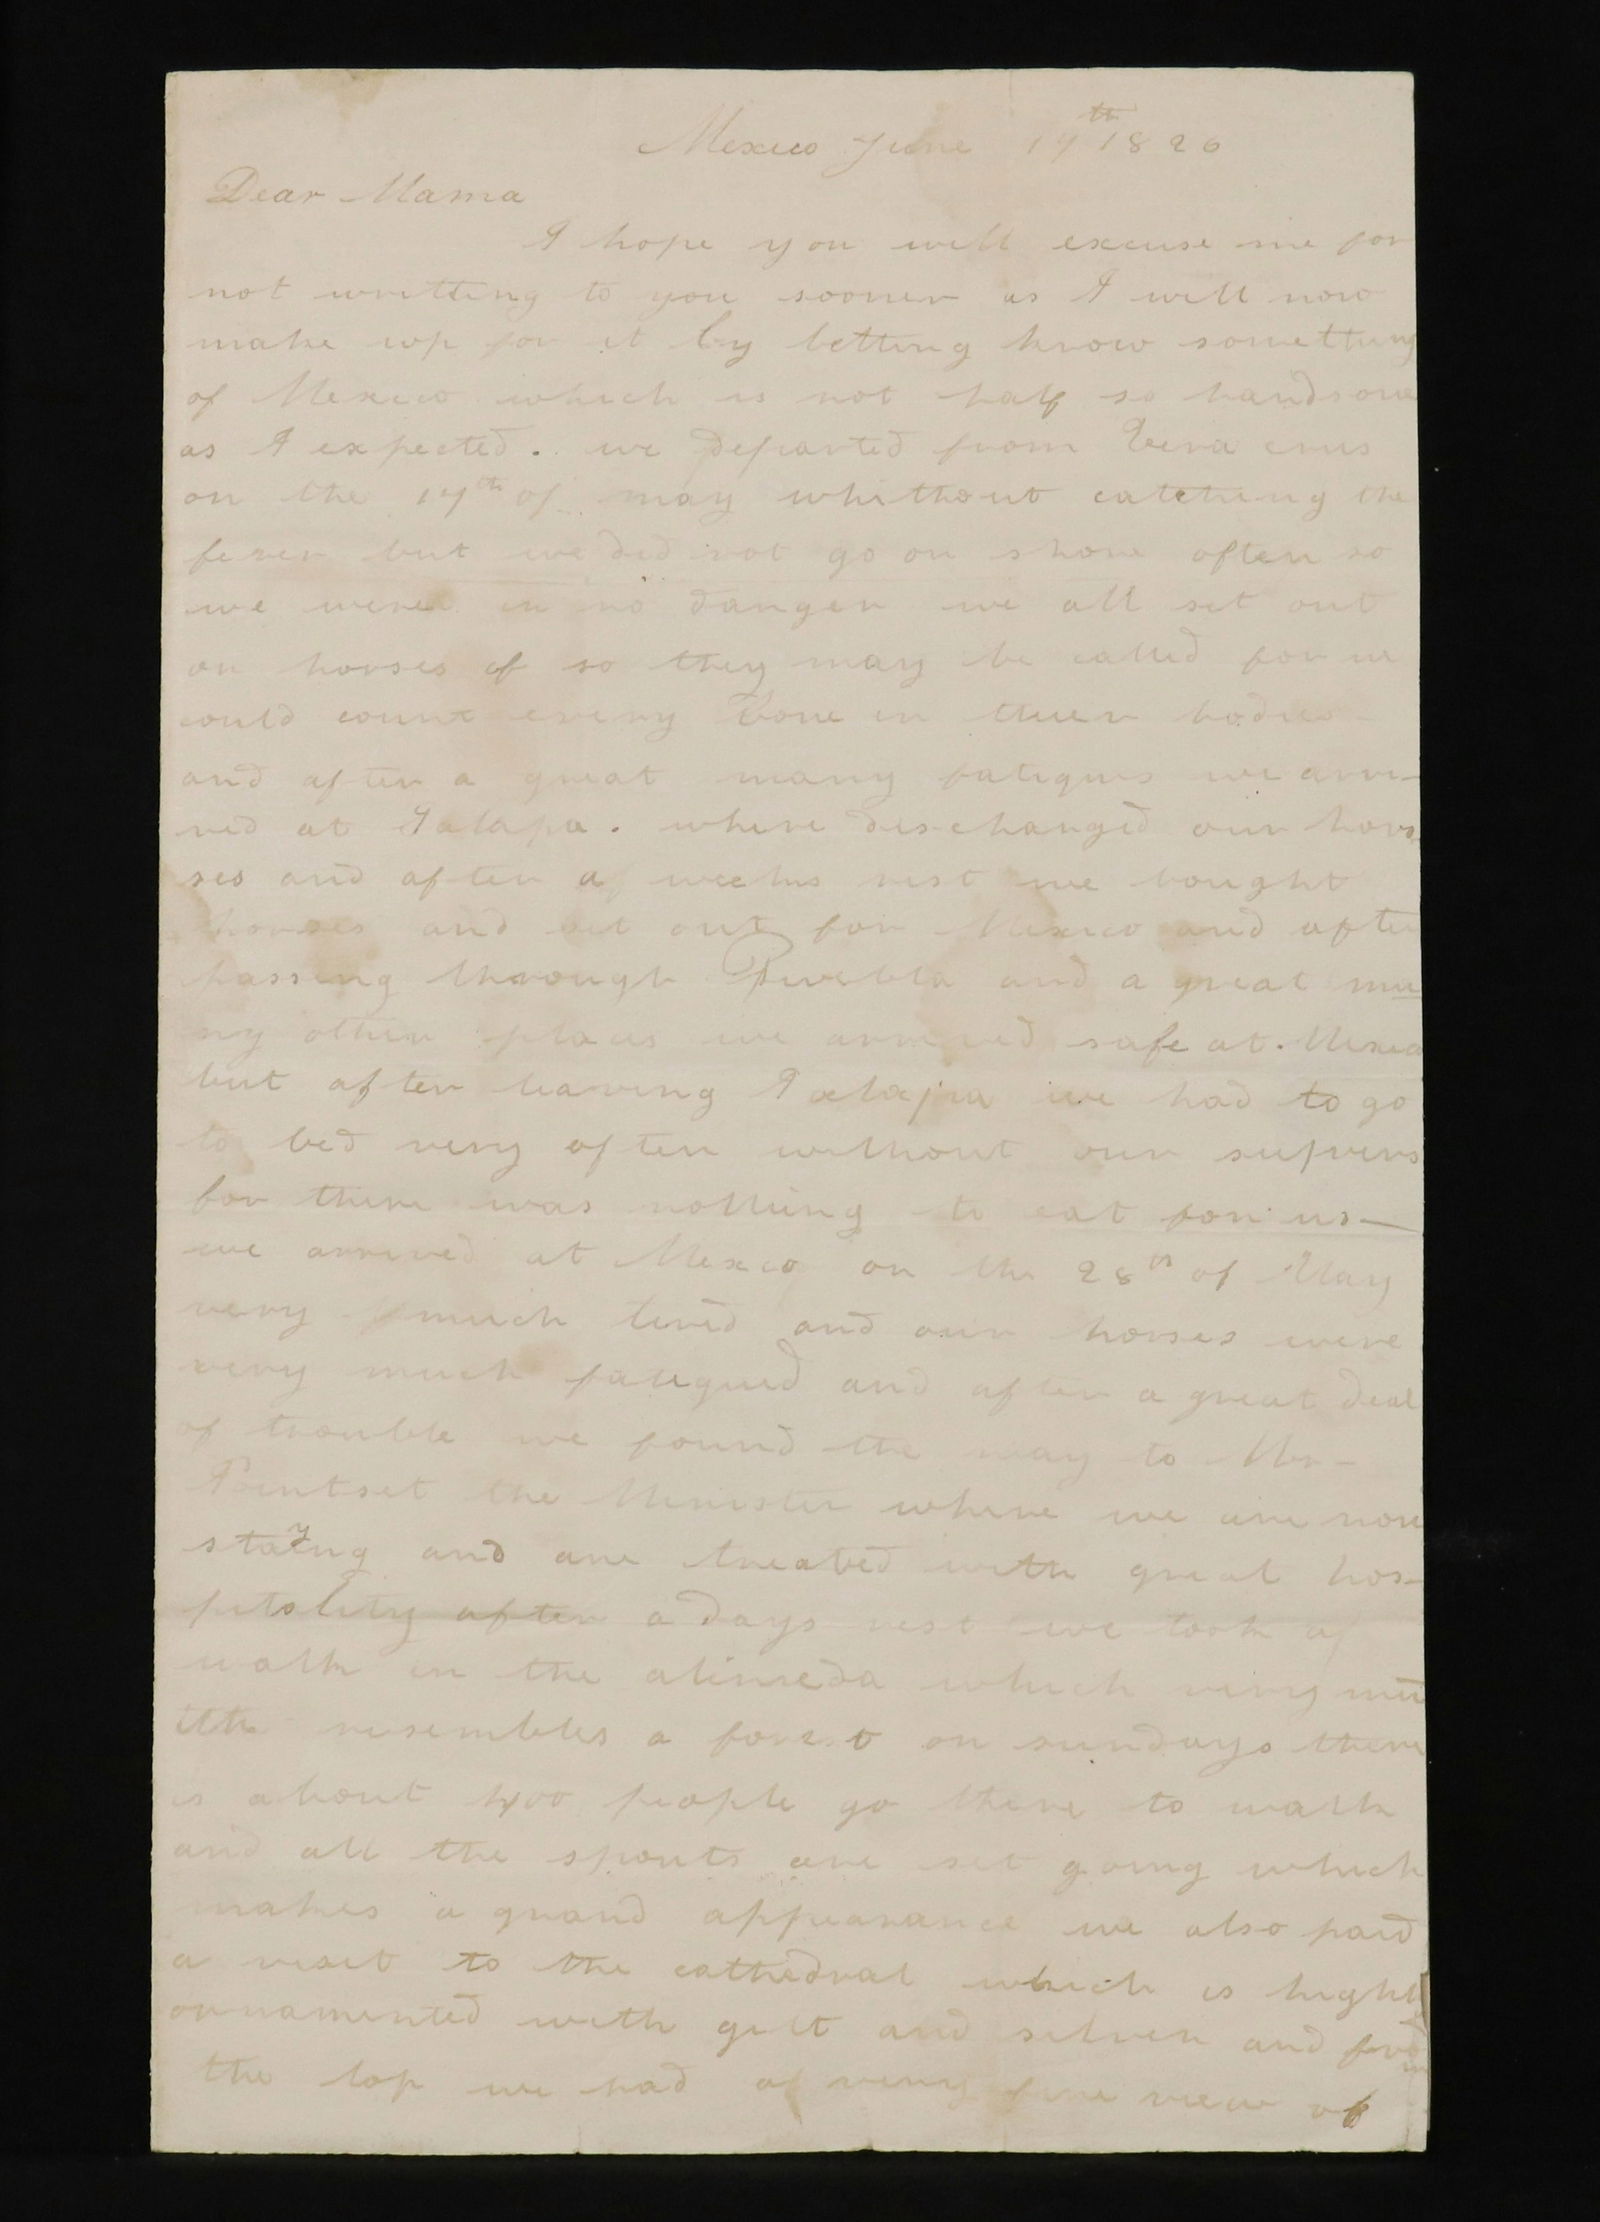 Mexico June 17th 1826
Dear Mama
I hope you will excuse me for
not writting to you sooner as I will now
make up for it by letting know something
of Mexico which is not half so handsome
as I expected. we departed from Vera crus
on the 17th of may whithout catching the
fever but we did not go on shore often so
we were in no danger we all set out
on horses if so they may be called for we
could count every bone in their bodies
and after a great many fatigues we arri-
ved at Jalapa. where dischanged our hors
ses and after a weeks rest we bought
horses and set out for Mexico and after
passing through Puebla and a great ma
ny other places we arrived safe at Mexico
but after leaving Jalapa we had to go
to bed very often without our supers
for there was nothing to eat for us—
we arrived at Mexico on the 28th of May
very much tired and our horses were
very much fatigued and after a great deal
of trouble we found the way to Mr-
Pointset the Minister where we are now
staying and are treated with great hos-
pitality after a days rest we took a
walk in the alimeda which very mu
tth resembles a forest on sundays there
is about 400 people go there to walk
and all the spouts are set going which
makes a grand appearance we also paid
a visit to the cathedral which is highly
ornamented with gilt and silver and from
the top we had a very fine view of